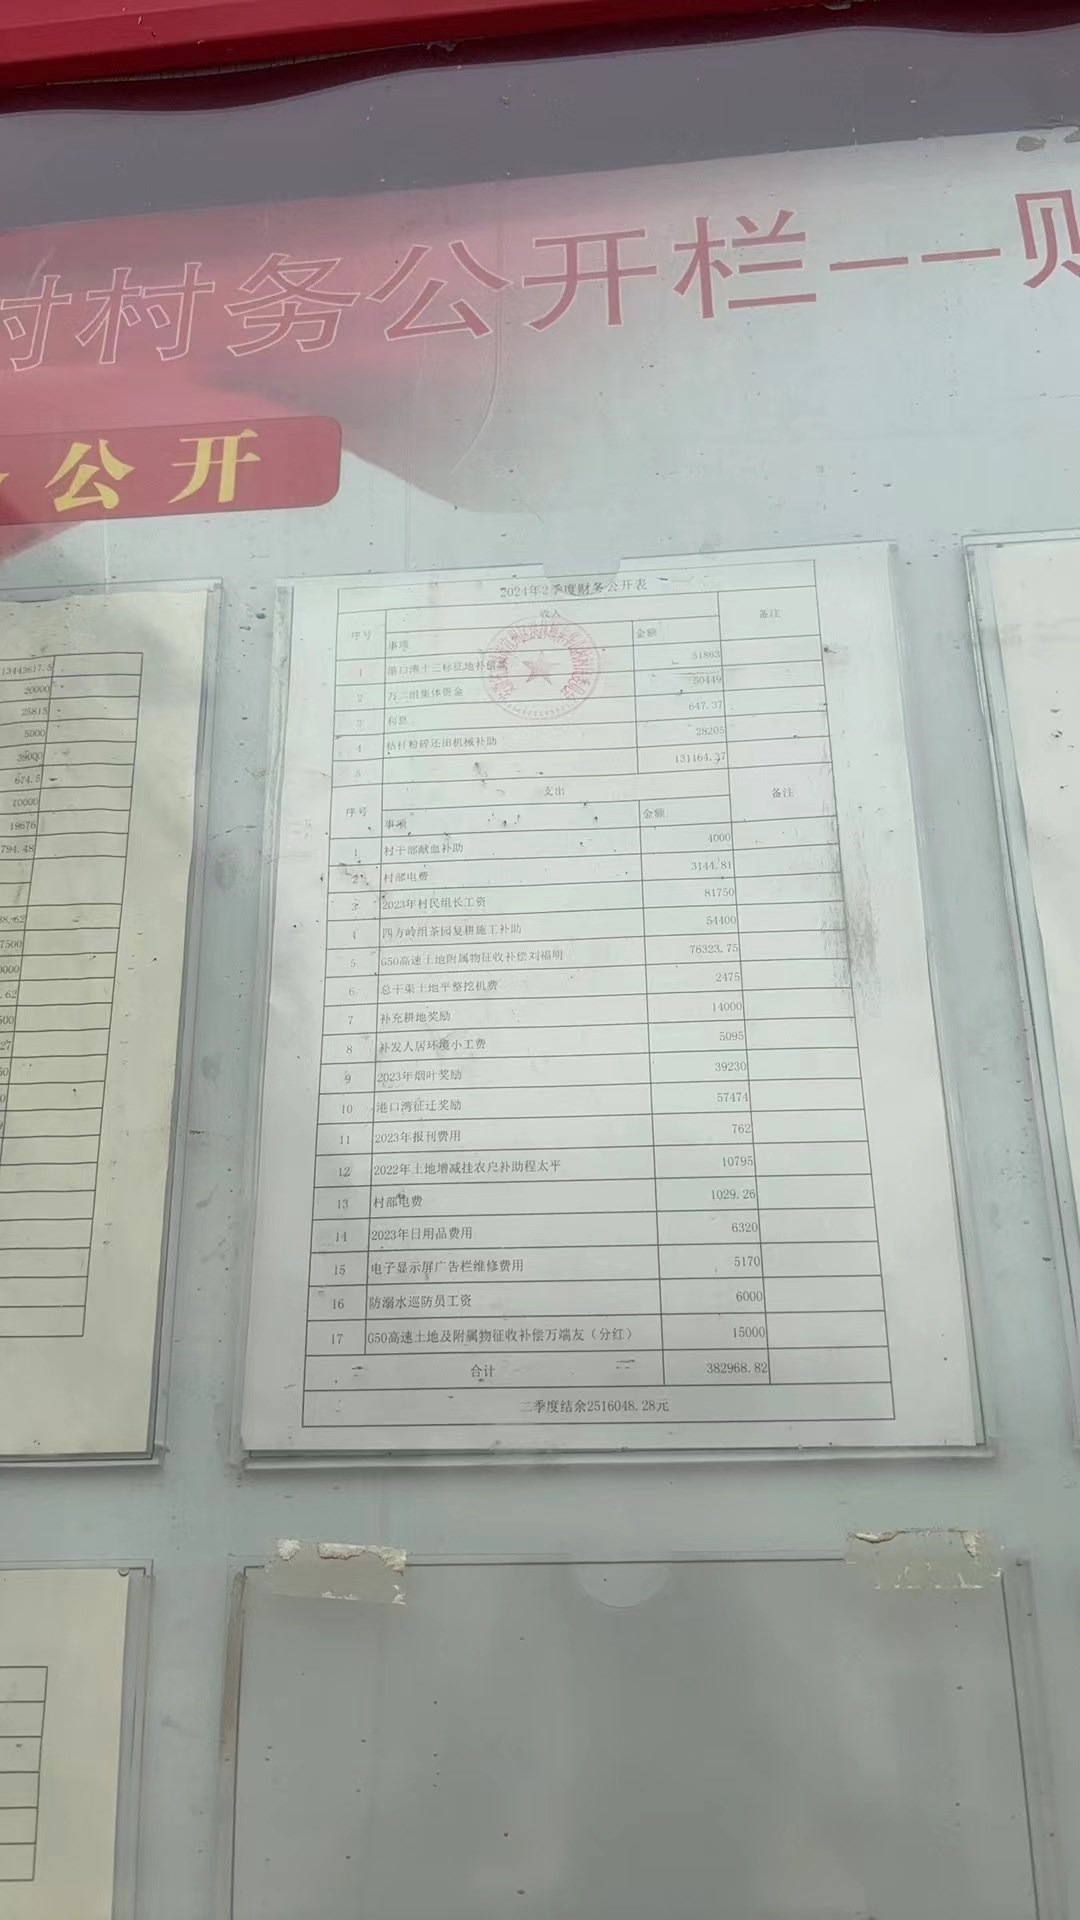 村村务公开栏--财
公开
13443617.5
20000
25815
5000
39000
674.5
10000
19676
794.48
38.62
7500
0000
.62
500
27
2024年2季度财务公开表
序号 收入 备注
事项 金额
1 港口湾十三标征地补偿款 51863
2 万二组集体资金 50449
3 利息 647.37
4 秸秆粉碎还田机械补助 28205
5 131164.37
序号 支出 备注
事项 金额
1 村干部献血补助 4000
2 村部电费 3144.81
3 2023年村民组长工资 81750
4 四方岭组茶园复耕施工补助 54400
5 G50高速土地附属物征收补偿刘福明 76323.75
6 总干渠土地平整挖机费 2475
7 补充耕地奖励 14000
8 补发人居环境小工费 5095
9 2023年烟叶奖励 39230
10 港口湾征迁奖励 57474
11 2023年报刊费用 762
12 2022年土地增减挂农户补助程太平 10795
13 村部电费 1029.26
14 2023年日用品费用 6320
15 电子显示屏广告栏维修费用 5170
16 防溺水巡防员工资 6000
17 G50高速土地及附属物征收补偿万端友（分红） 15000
合计 382968.82
二季度结余2516048.28元